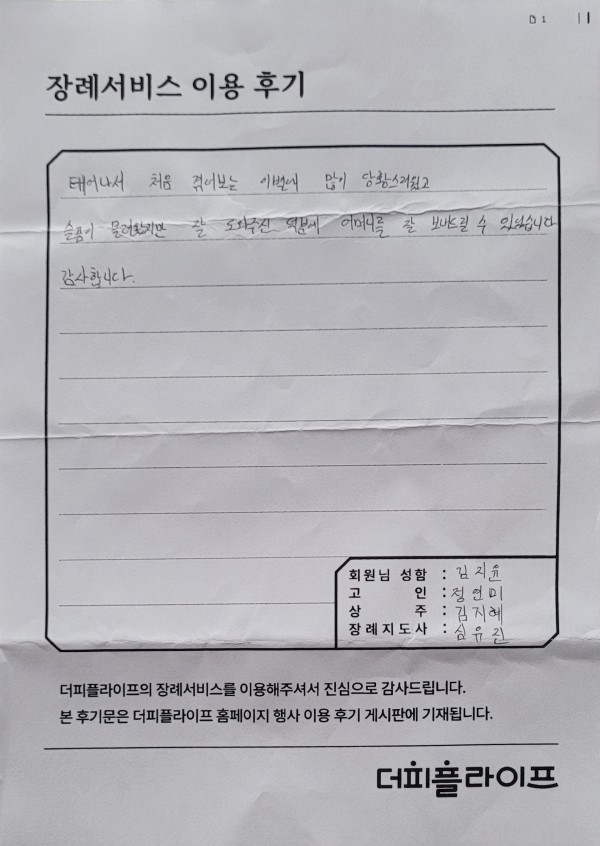 D1 11
장례서비스 이용 후기
태어나서 처음 겪어보는 이별에 많이 당황스러웠고
슬픔이 몰려왔지만 잘 도와주신 덕분에 어머니를 잘 보내드릴 수 있었습니다
감사합니다.
회원님 성함 : 김지윤
고 인 : 정연미
상 주 : 김지혜
장례지도사 : 심유진
더피플라이프의 장례서비스를 이용해주셔서 진심으로 감사드립니다.
본 후기문은 더피플라이프 홈페이지 행사 이용 후기 게시판에 기재됩니다.
더피플라이프